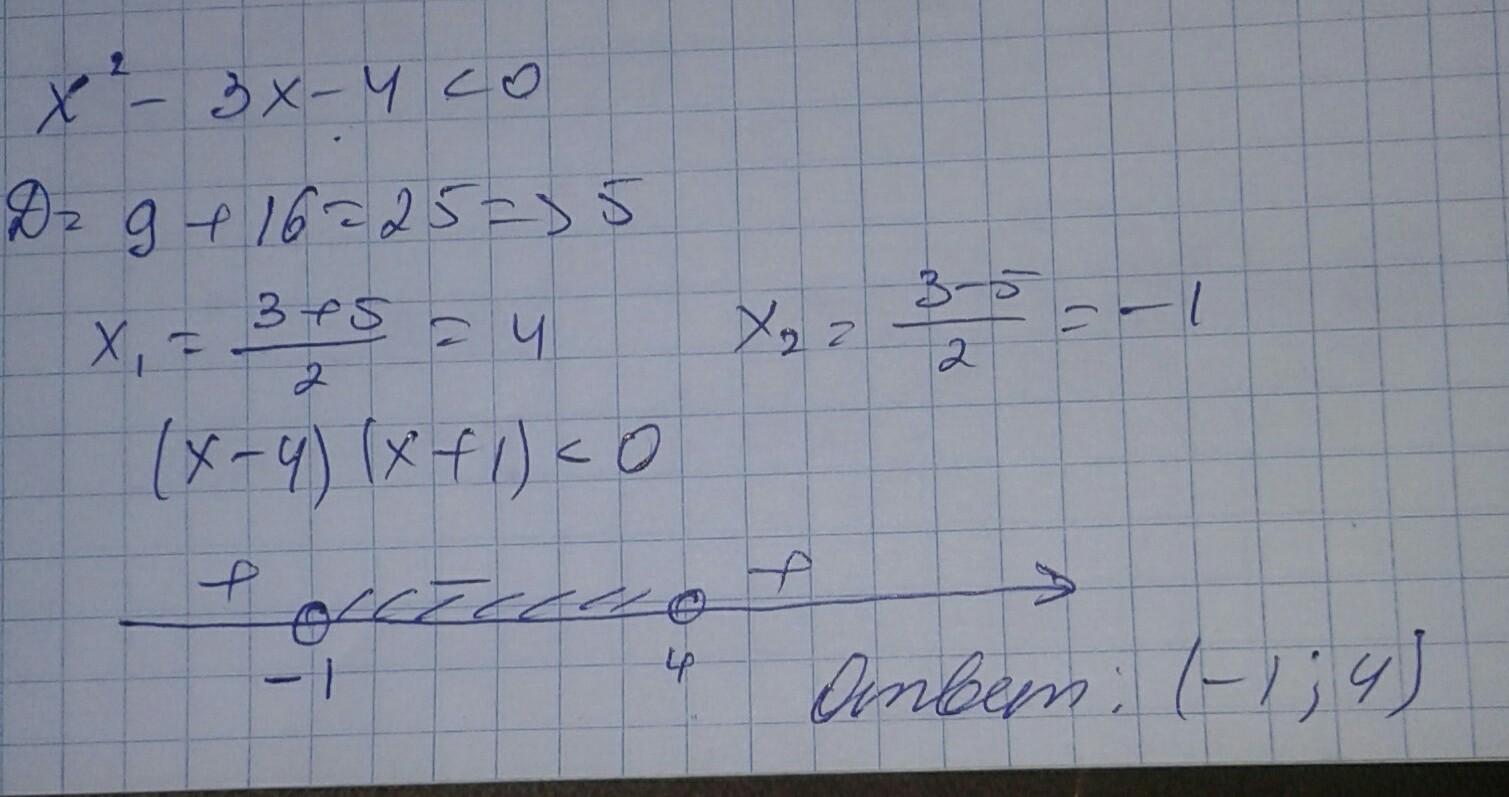 x² - 3x - 4 < 0
D = 9 + 16 = 25 => 5
x₁ = (3+5)/2 = 4 x₂ = (3-5)/2 = -1
(x-4)(x+1) < 0
+ - +
-1 4
Ответ: (-1; 4)